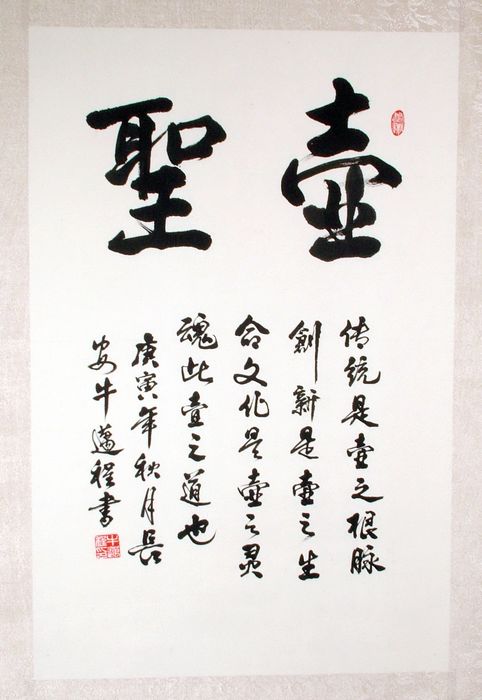 壺聖
传统是壶之根脉
創新是壶之生
命文化是壶之灵
魂此壶之道也
庚寅年秋月長
安牛邁程書